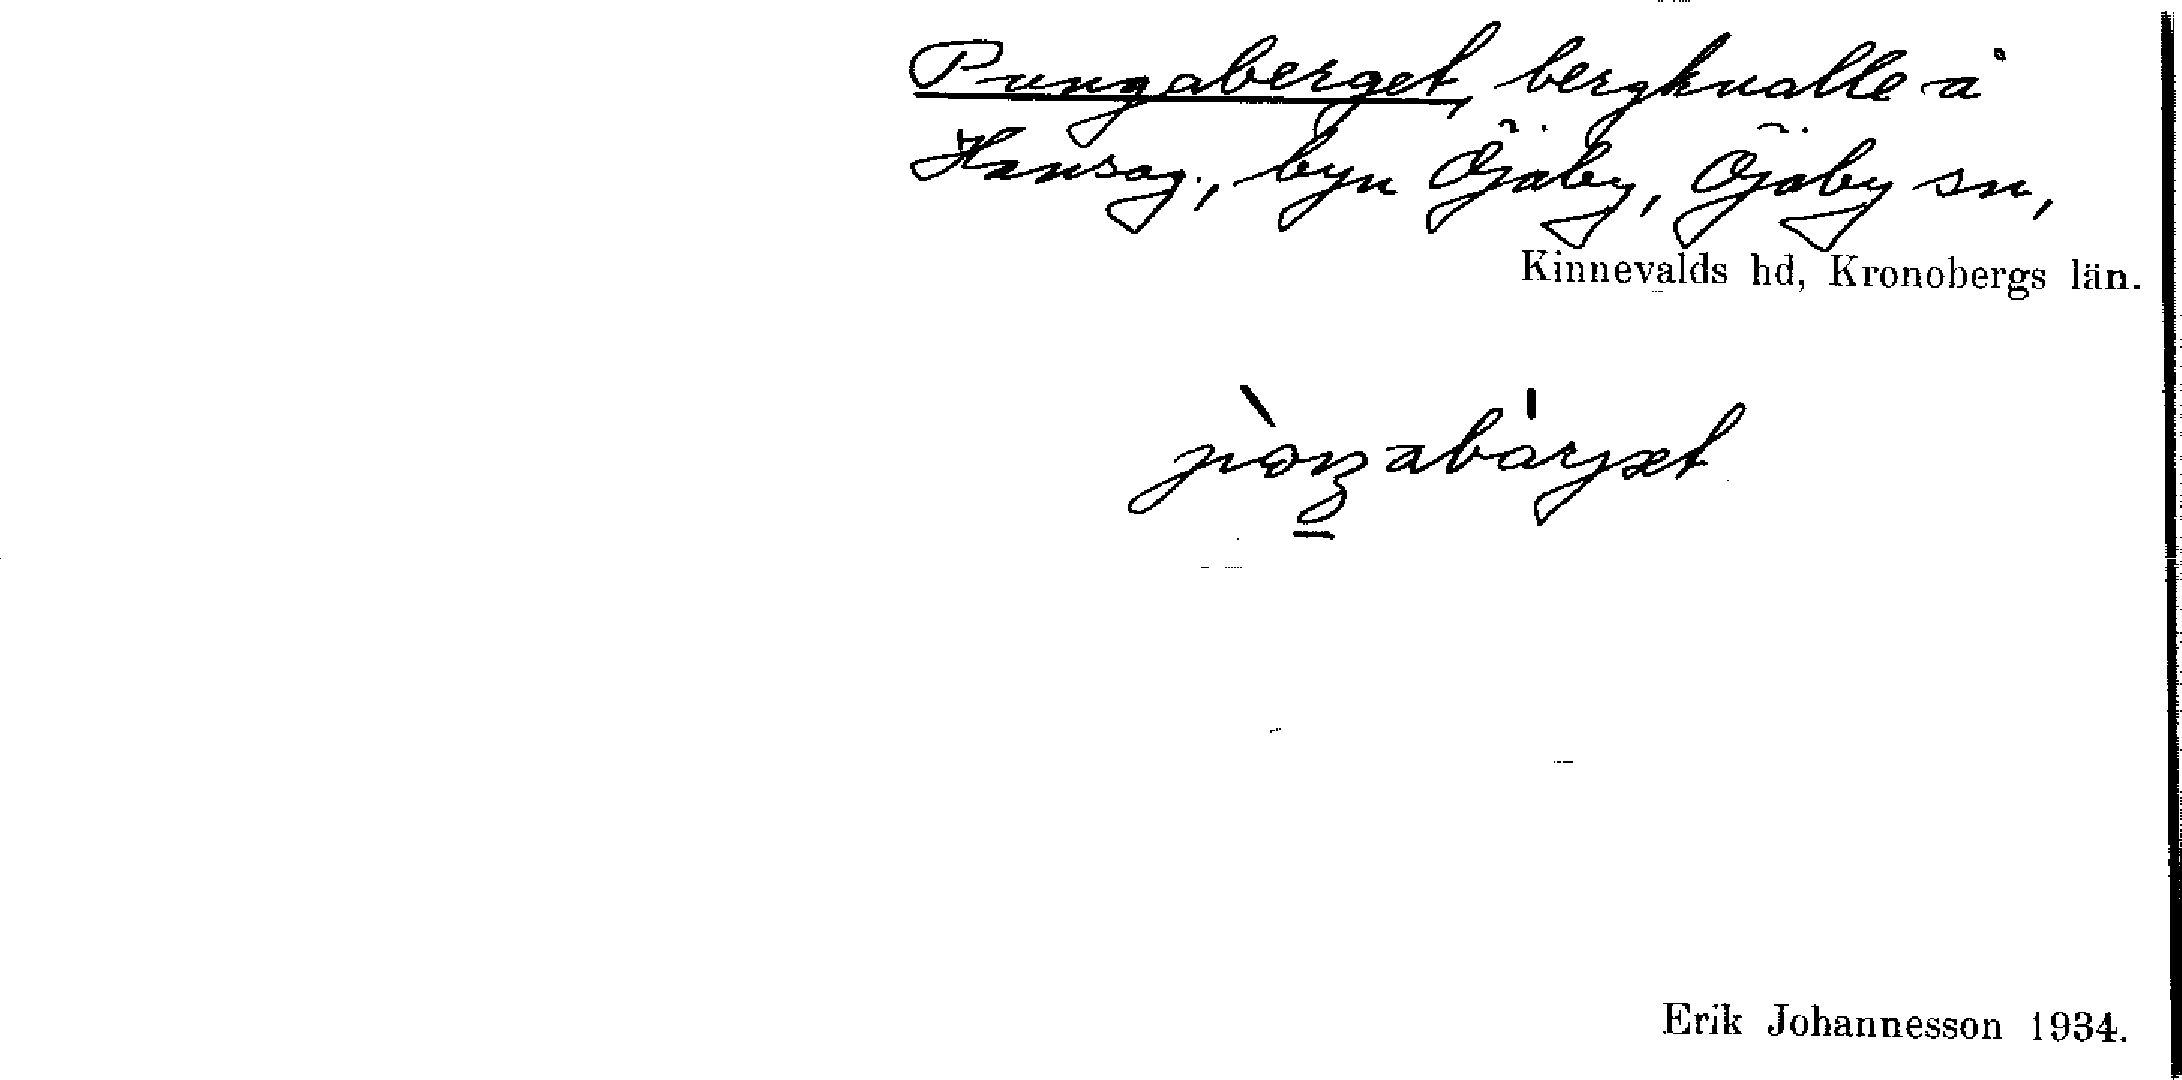 Pungaberget, bergknalle å
Hansag., byn Öjaby, Öjaby sn,
Kinnevalds hd, Kronobergs län.
Erik Johannesson 1934.